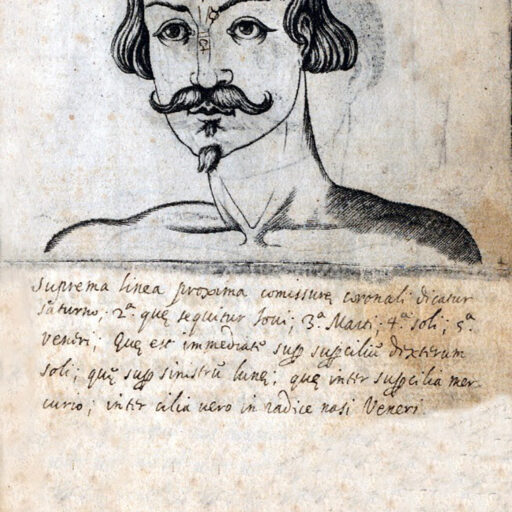 suprema linea proxima comissurę coronali dicatur
saturno; 2ª quę sequitur Ioui; 3ª Marti; 4ª soli; 5ª
veneri; Quę est immediatè supp suppciliũ dexterum
soli; quę supp sinistrũ lunę; quę inter suppcilia mer-
curio; inter cilia vero in radice nasi Veneri.